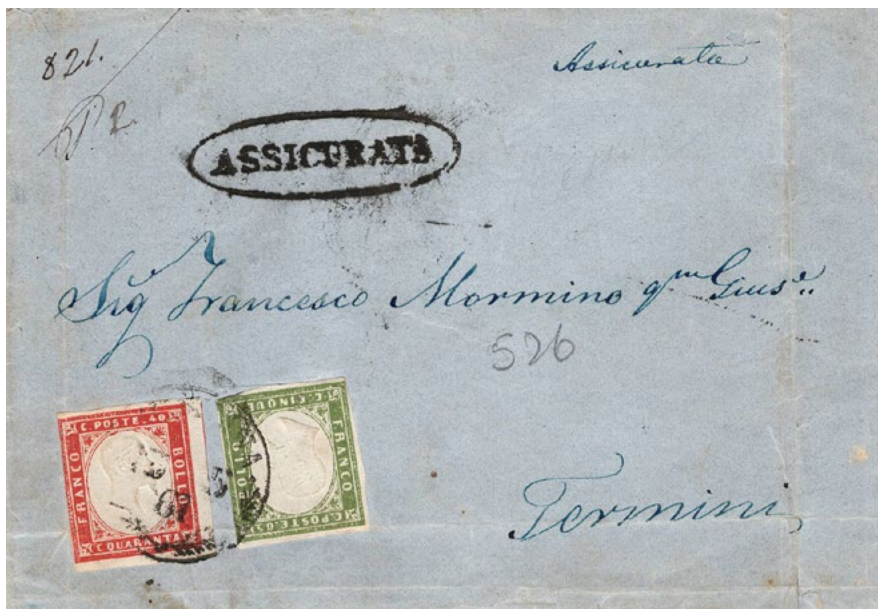 821.
Assicurata
P. 2.
ASSICURATA
Sig.e Francesco Mormino qm Gius.e
526
C. POSTE. 40
FRANCO
BOLLO
C. QUARANTA
C. CINQUE
FRANCO
BOLLO
C. POSTE. 5
Termini